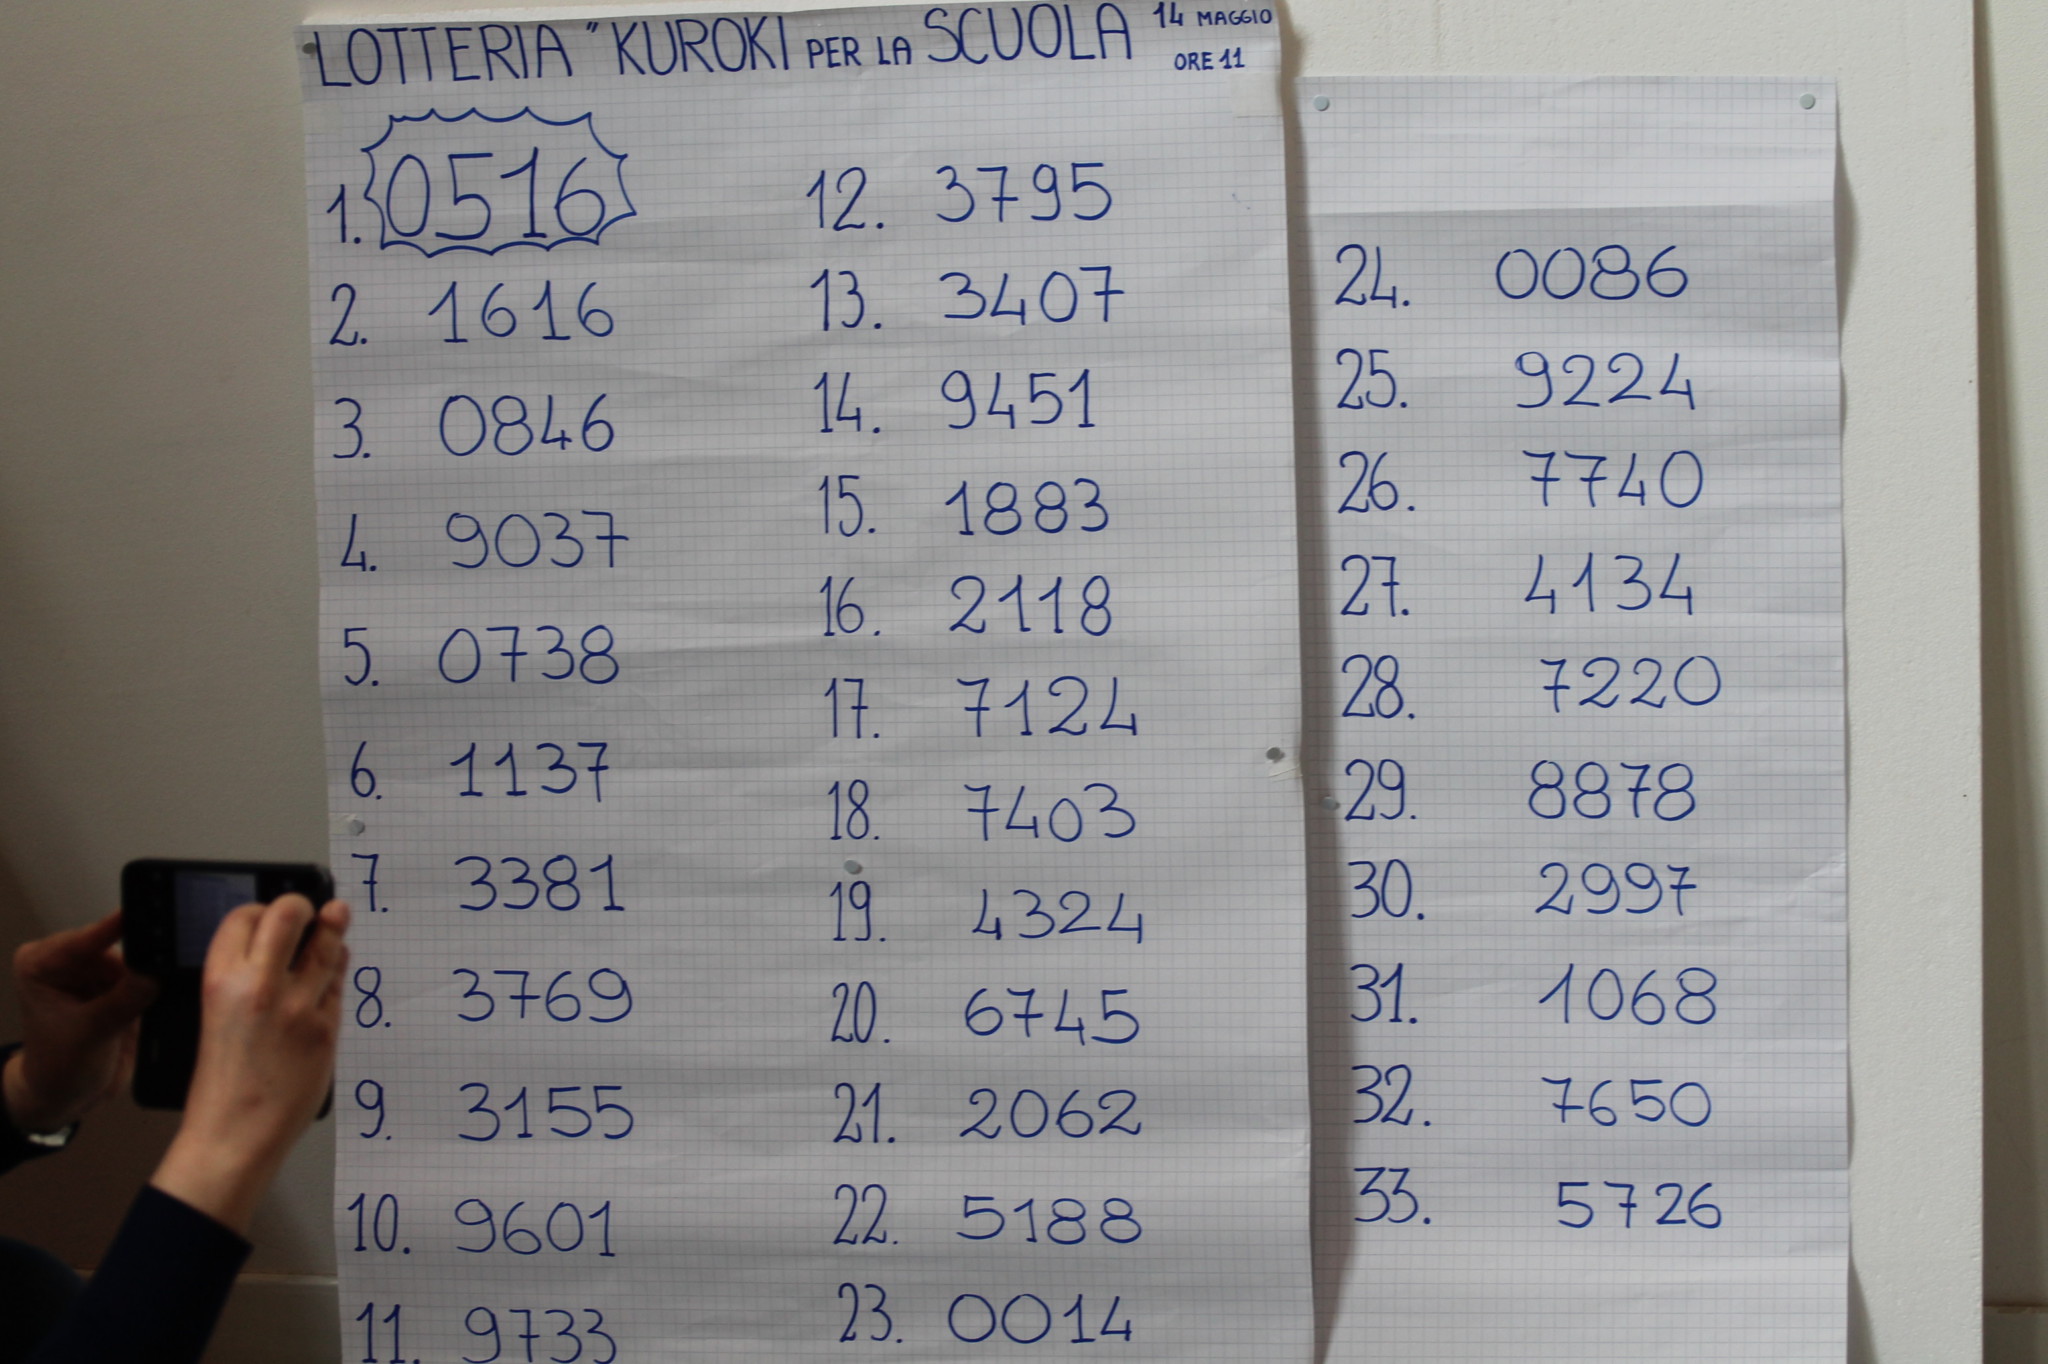 LOTTERIA "KUROKI PER LA SCUOLA 14 MAGGIO
ORE 11
1. 0516
2. 1616
3. 0846
4. 9037
5. 0738
6. 1137
7. 3381
8. 3769
9. 3155
10. 9601
11. 9733
12. 3795
13. 3407
14. 9451
15. 1883
16. 2118
17. 7124
18. 7403
19. 4324
20. 6745
21. 2062
22. 5188
23. 0014
24. 0086
25. 9224
26. 7740
27. 4134
28. 7220
29. 8878
30. 2997
31. 1068
32. 7650
33. 5726